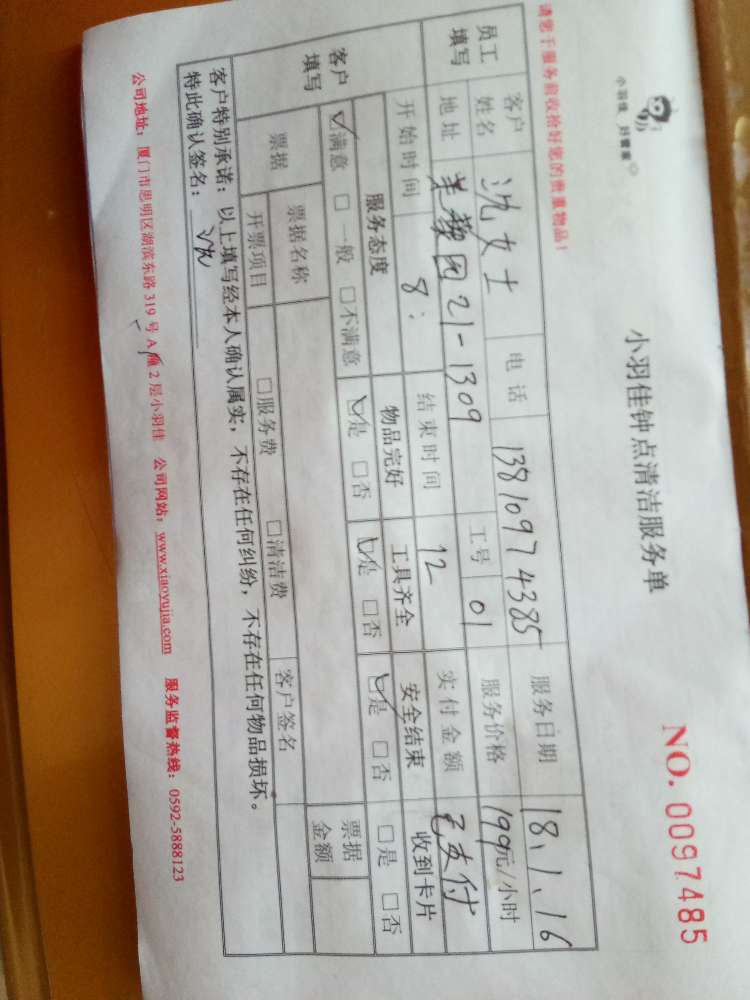 小羽佳
小羽佳钟点清洁服务单
NO. 0097485
请您于服务前收拾好您的贵重物品!
员工填写 客户姓名 沈女士 电话 13810974385 服务日期 18.1.16
地址 21-1309 工号 01 服务价格 199元/小时
开始时间 8: 结束时间 12 实付金额 已支付
客户填写 服务态度 物品完好 工具齐全 安全结束 收到卡片
☑满意 □一般 □不满意 ☑是 □否 ☑是 □否 ☑是 □否 □是 □否
票据 票据名称 客户签名 票据金额
开票项目 □服务费 □清洁费
客户特别承诺:以上填写经本人确认属实,不存在任何纠纷,不存在任何物品损坏。
特此确认签名: 沈
公司地址:厦门市思明区湖滨东路 319 号 A 2 层小羽佳 公司网站:www.xiaoyujia.com 服务监督热线:0592-5888123